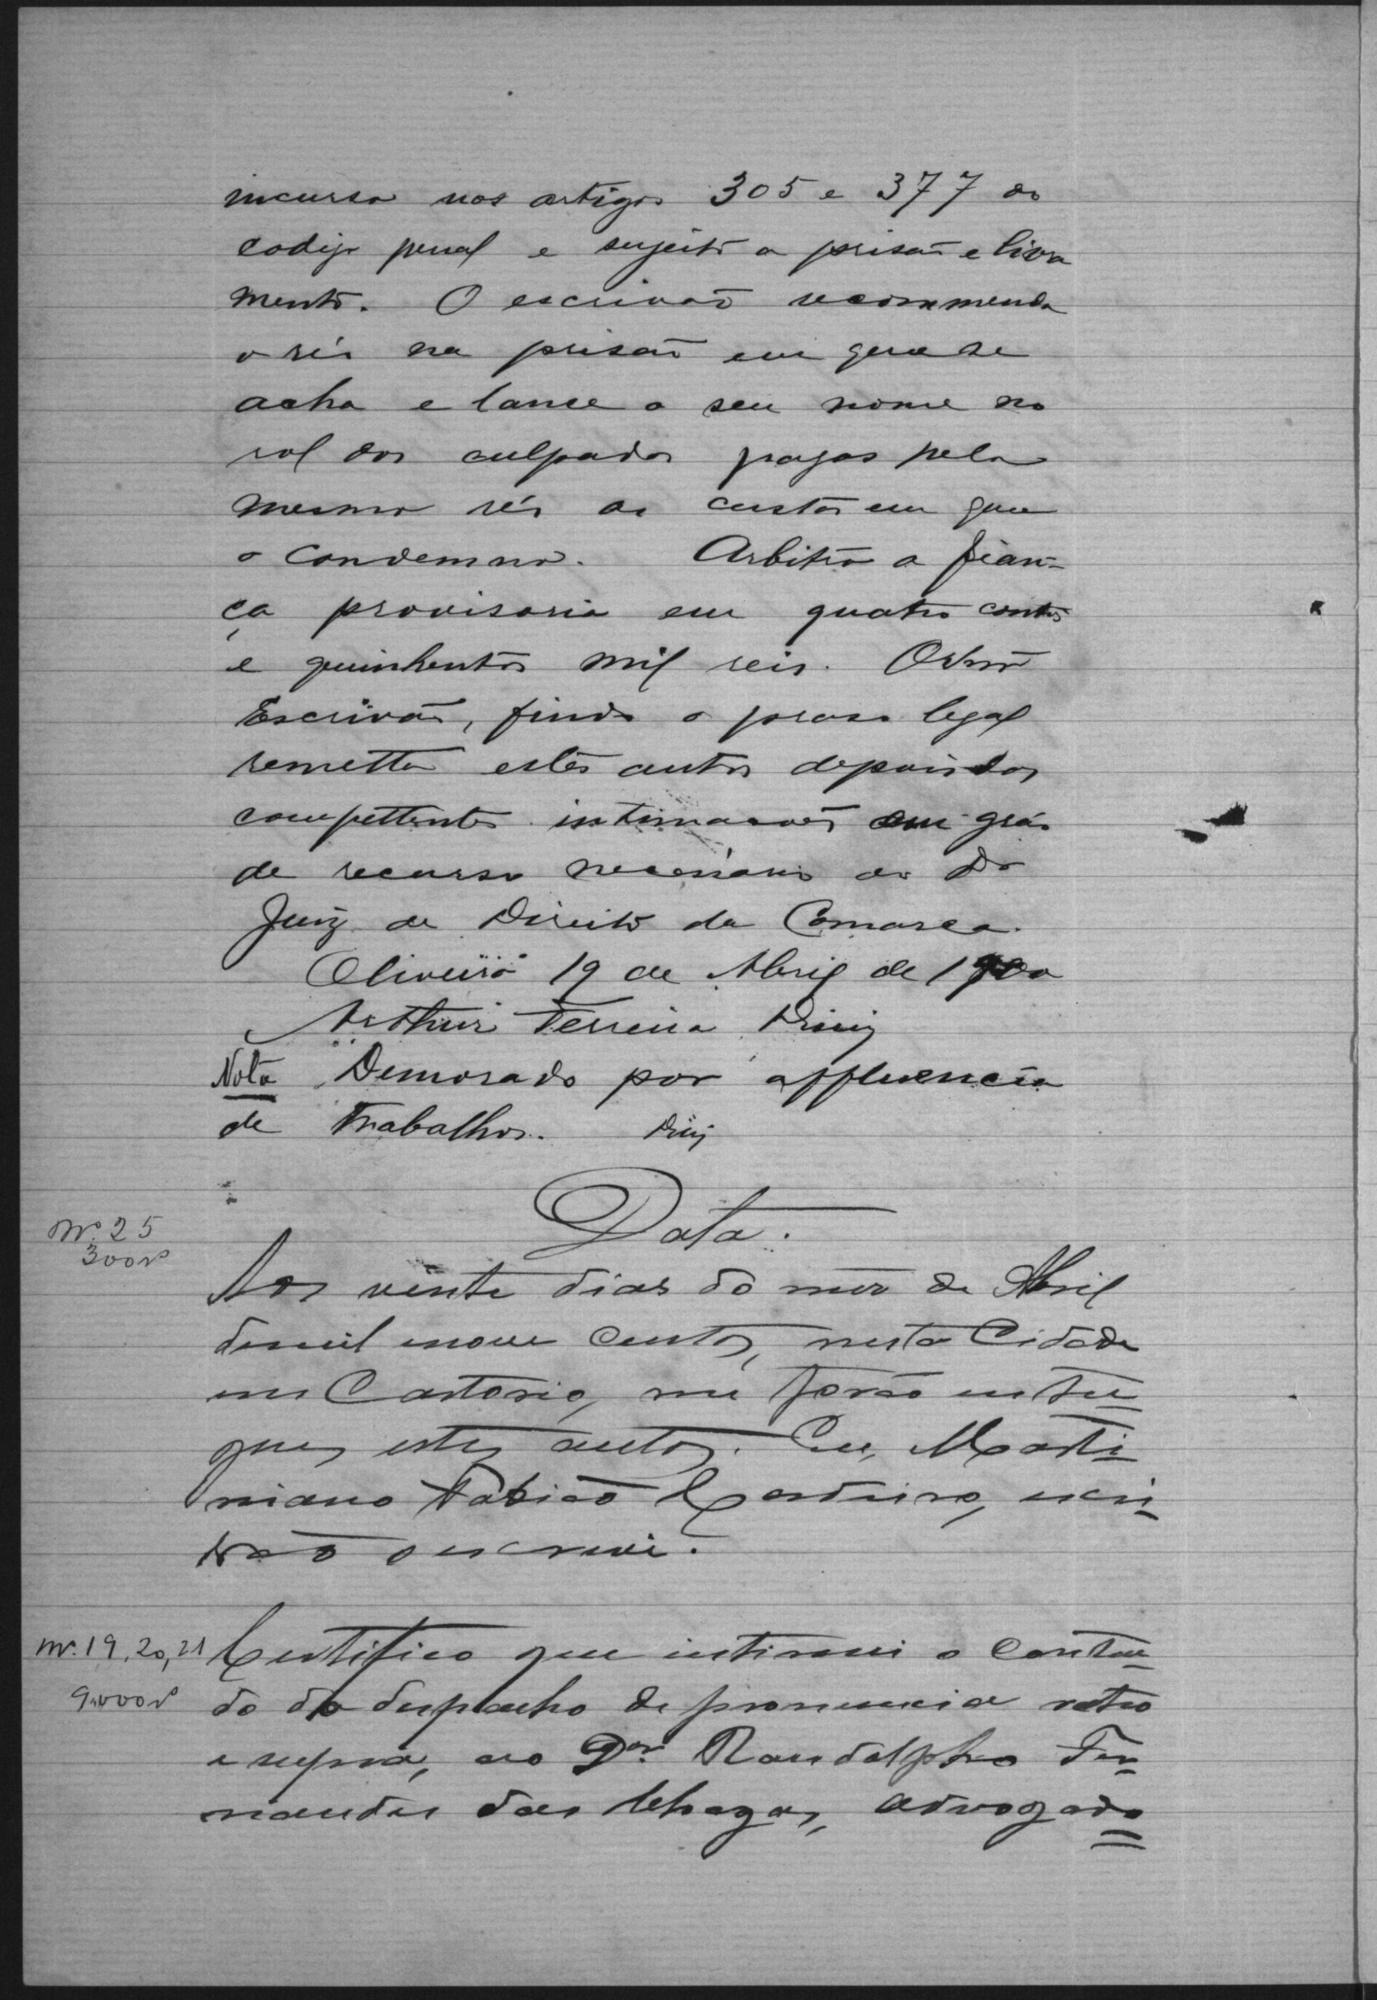 incurso nos artigos 305 e 377 do
codigo penal e sujeito a prisão e livra
mento. O escrivão recommenda
o réo na prisão em que se
acha e lance o seu nome no
rol dos culpados pagas pelo
mesmo réo as custas em que
o condemno. Arbitro a fian-
ça provisoria em quatro contos
e quinhentos mil reis. O
Escrivão, findo o praso legal
remetta estes autos depois das
competentes intimações em gráo
de recurso necessario ao Dr
Juiz de Direito da Comarca.
Oliveira 19 de Abril de 1900
Arthur Ferreira Diniz
Nota Demorado por affluencia
de trabalhos. Diniz
Data.
Nº. 25
300rs
Aos vinte dias do mez de Abril
de mil e nove centos, nesta Cidade
em Cartorio, me forão entre-
gues estes autos. Eu, Marti-
niano Fabião Cordeiro, escri-
vão o escrevi.
Nº. 19, 20, 21
9.000rs
Certifico que intimei o conteu-
do do despacho de pronuncia retro
e supra, ao Dor. Randolpho Fer-
nandes das Chagas, advogado